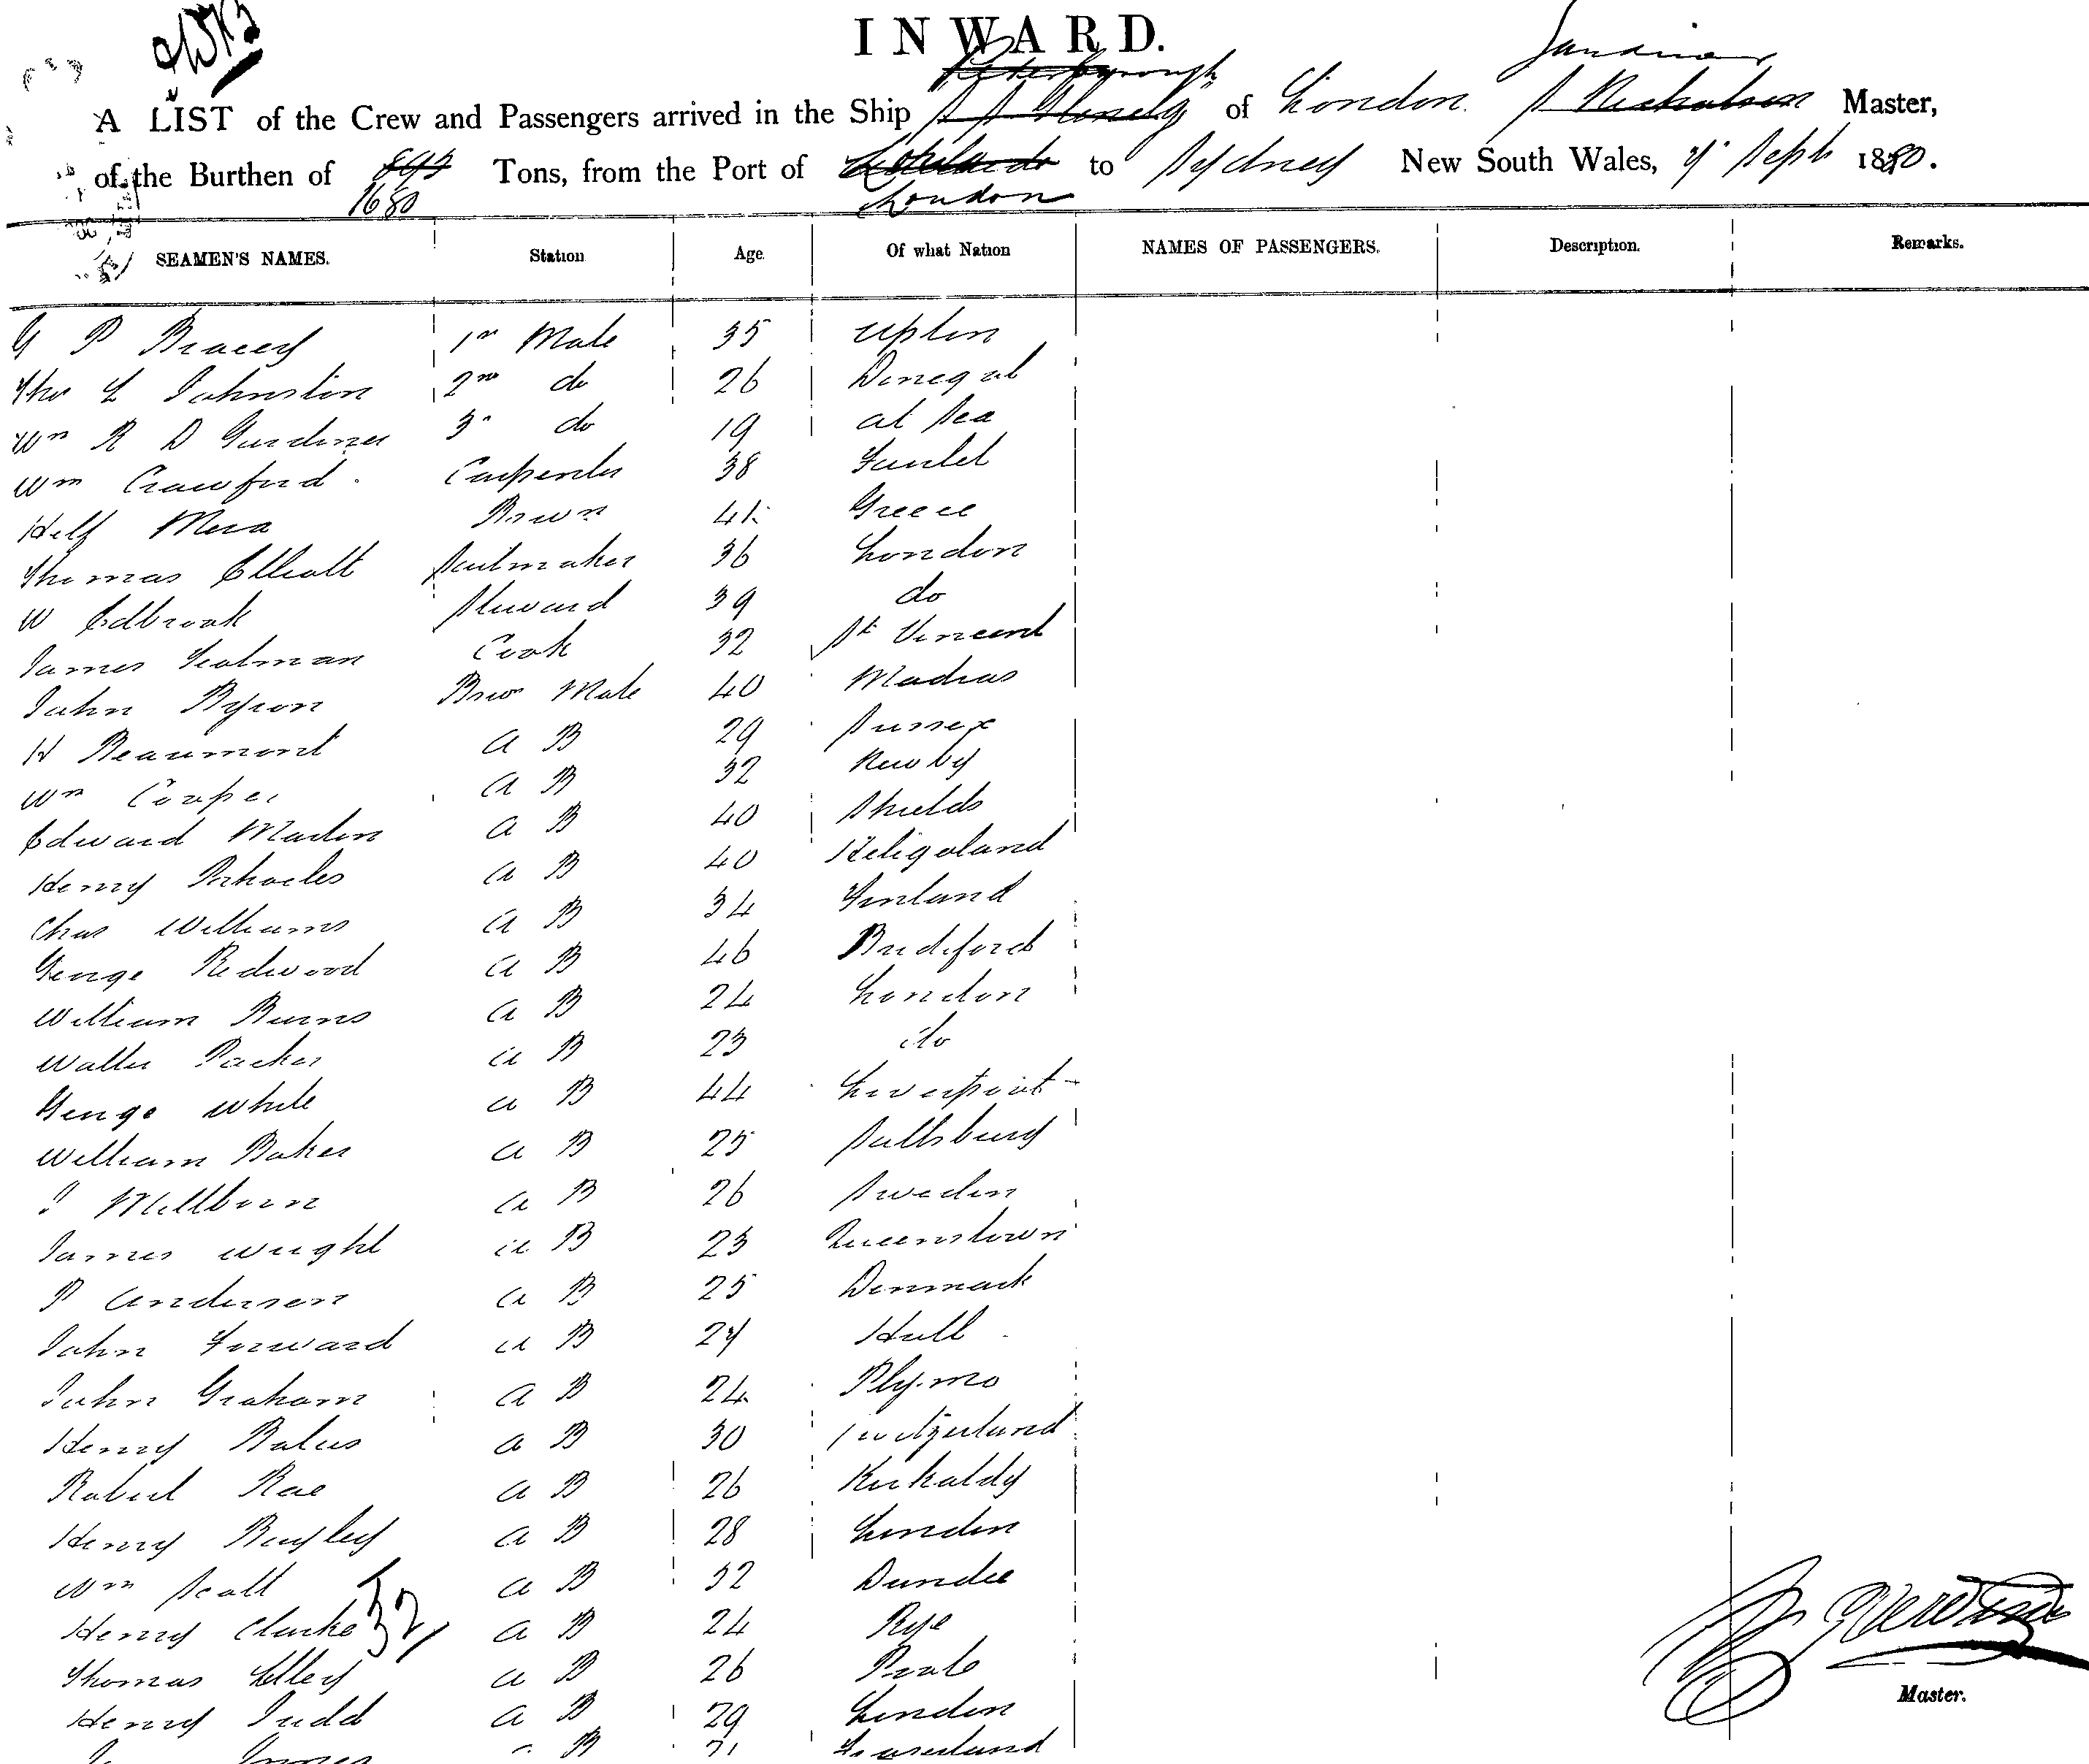 INWARD.
Peterborough Jardine
A LIST of the Crew and Passengers arrived in the Ship S S Glenelg of London. Nicholson Master,
of the Burthen of Tons, from the Port of to Sydney New South Wales, 7 Sept 1880.
1680 London
SEAMEN'S NAMES. Station Age. Of what Nation NAMES OF PASSENGERS. Description. Remarks.
G P Bracey 1st Mate 35 Upton
Thos L Johnston 2nd do 26 Donegal
Wm R D Gardiner 3rd do 19 at Sea
Wm Crawford Carpenter 38
Mera Bosun Greece
Thomas Elliott Sailmaker 36 London
W Edbrook Steward 39 do
James Seatman Cook 32 St Vincent
John Byron Bsw Mate 40 Madras
H Beaumont A B 29 Sussex
Wm Cooper A B 32 Newby
Edward Martin A B 40 Shields
Henry A B 40 Heligoland
Chas Williams A B 34 Finland
George Redwood A B 46 Bradford
William Burns A B 24 London
Walter Packer A B 23 do
George White A B 44 Liverpool
William Baker A B 25 Saltsburg
J Millborn A B 26 Sweden
James Wright A B 23 Queenstown
P Andersen A B 25 Denmark
John Forward A B 27 Hull
John Graham A B 24 Plymo
Henry Bates A B 30 Switzerland
Robert Rae A B 26 Kirkaldy
Henry Bayley A B 28 London
Wm Scott A B 32 Dundee
Henry Clarke 32 A B 24 Rye
Thomas Elley A B 26 Poole
Henry Judd A B 29 London
Master.
B